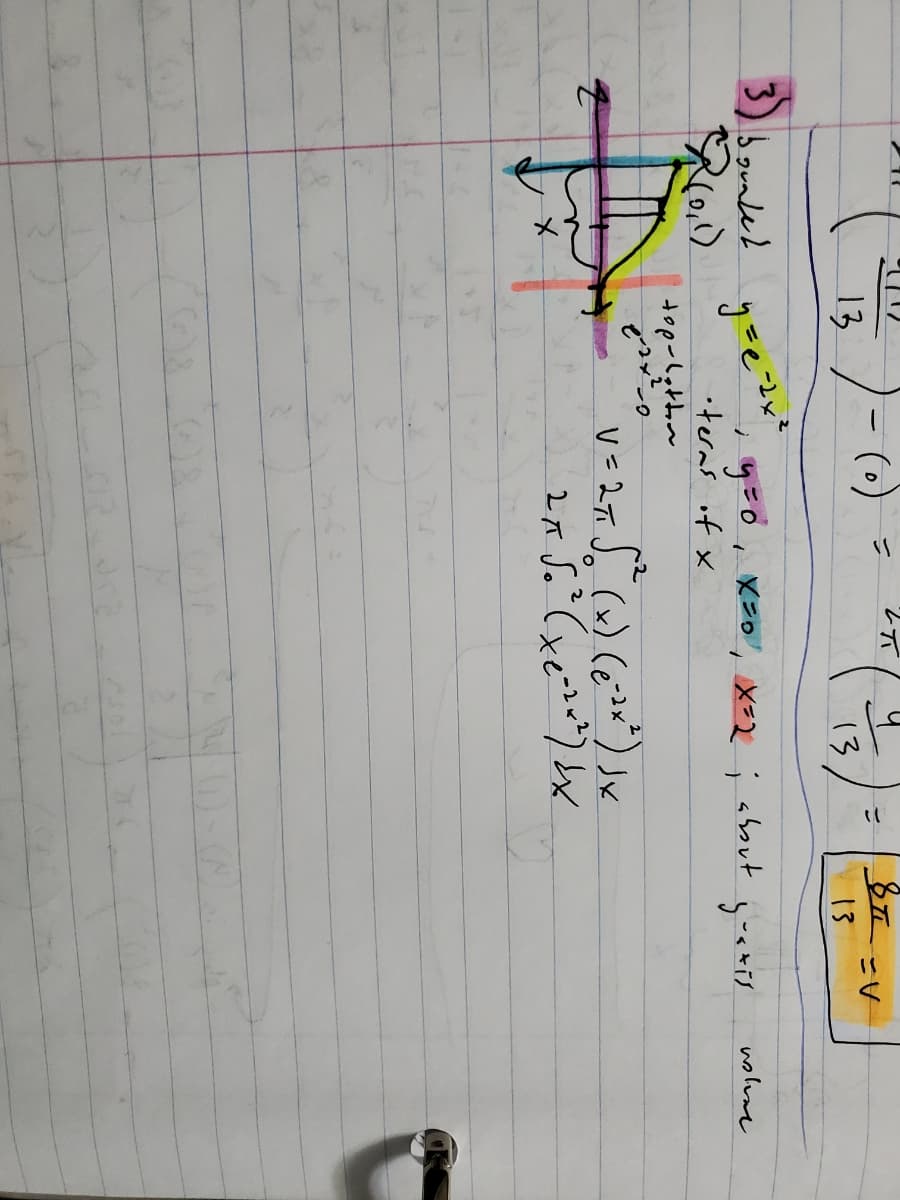 ( 13 ) - (0) = 2π ( 4/13 ) = 8π/13 = V
3) bounded y = e^-2x², y=0, x=0, x=2 ; about y-axis volume
(0,1)
• terms of x
top-bottom
e^-2x²-0
V = 2π ∫₀² (x)(e^-2x²) dx
2π ∫₀² (xe^-2x²) dx
x